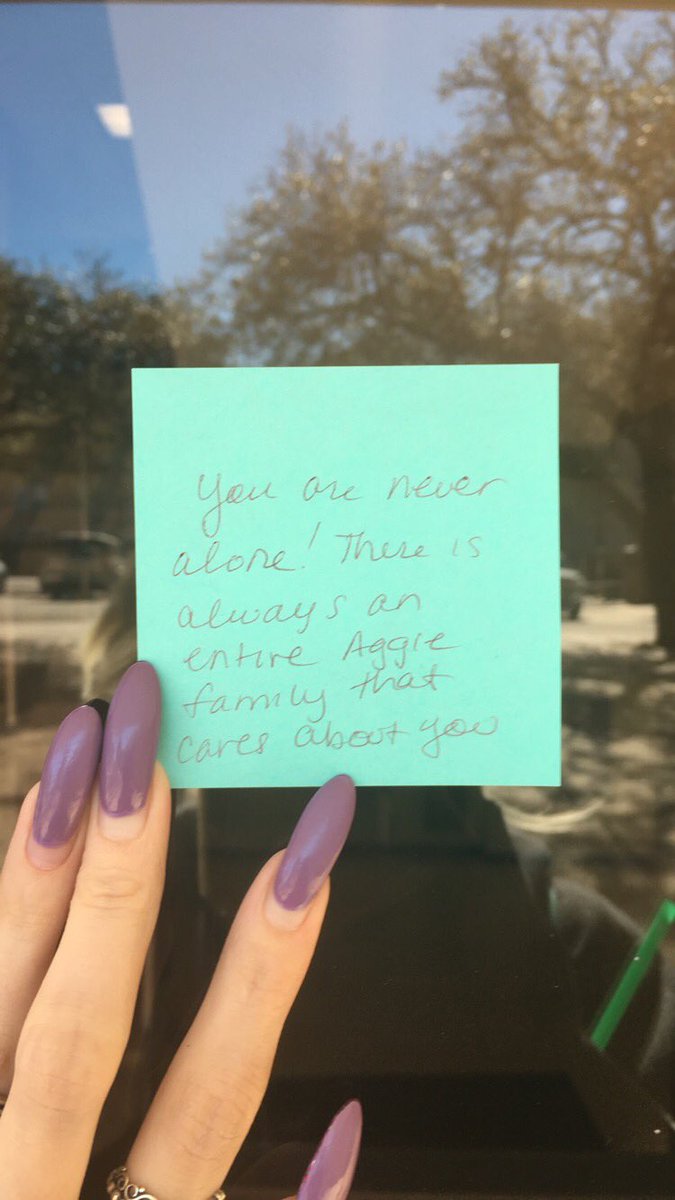 You are never
alone! There is
always an
entire Aggie
family that
cares about you